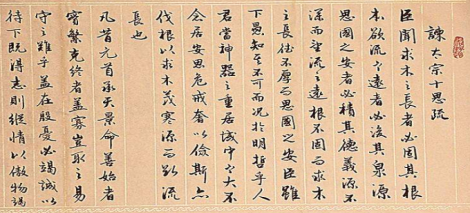 諫太宗十思疏
臣聞求木之長者必固其根
本欲流之遠者必浚其泉源
思國之安者必積其德義源不
深而望流之遠根不固而求木
之長德不厚而思國之安臣雖
下愚知其不可而況於明哲乎人
君當神器之重居域中之大不
念居安思危戒奢以儉斯亦
伐根以求木茂塞源而欲流
長也
凡昔元首承天景命善始者
實繁克終者蓋寡豈取之易
守之難乎蓋在殷憂必竭誠以
待下既得志則縱情以傲物竭